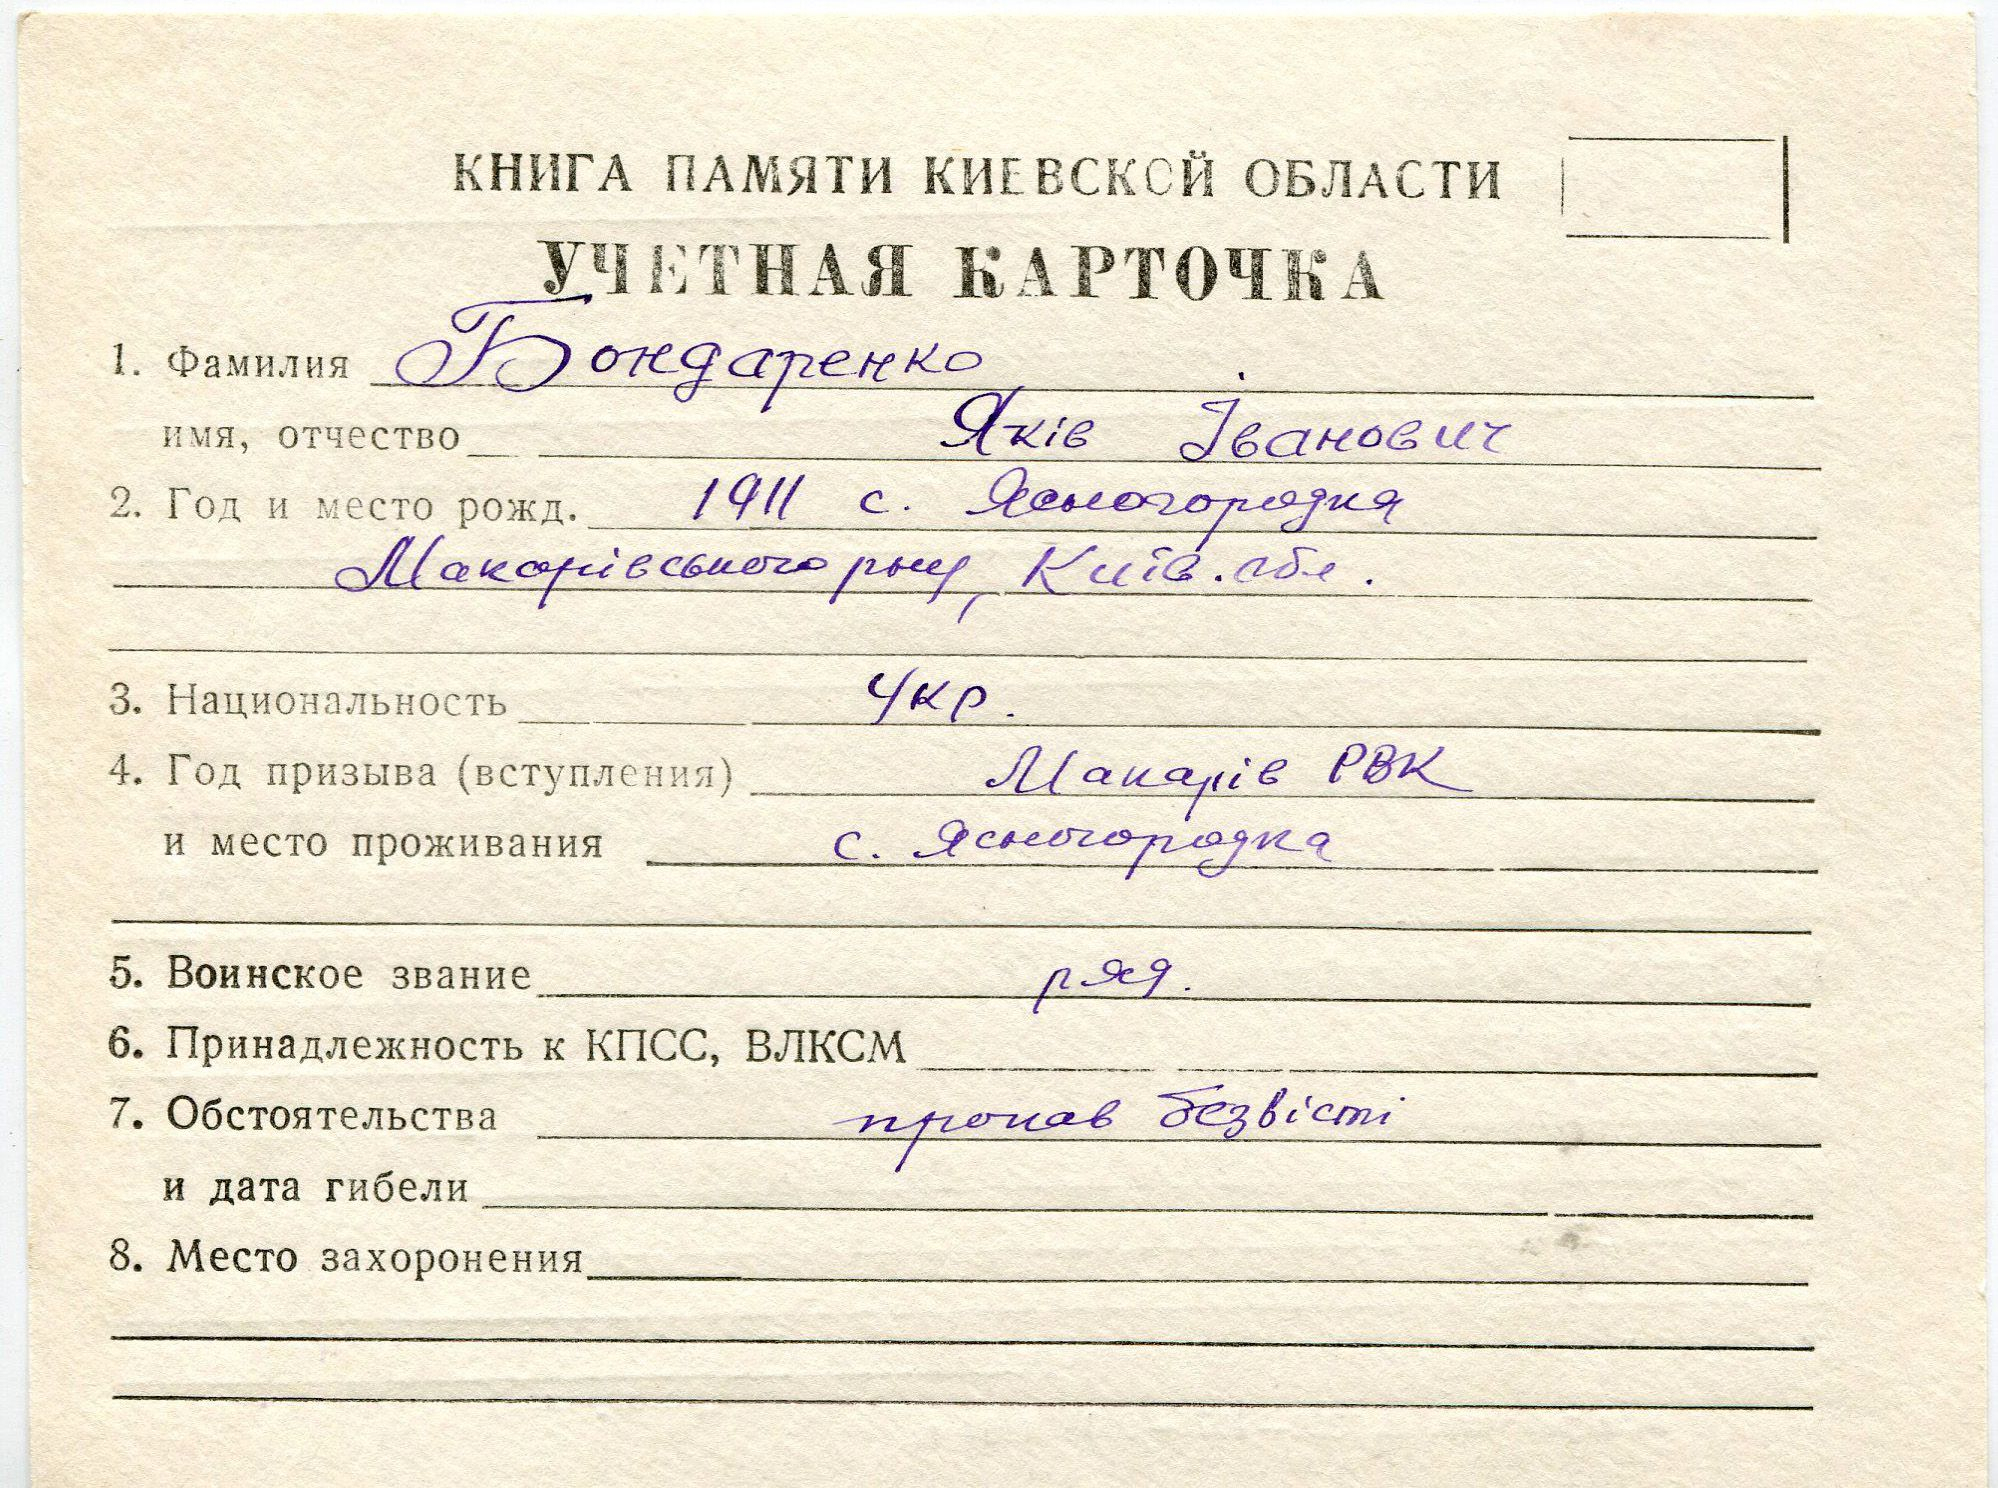 КНИГА ПАМЯТИ КИЕВСКОЙ ОБЛАСТИ
УЧЕТНАЯ КАРТОЧКА
1. Фамилия Бондаренко
имя, отчество Яків Іванович
2. Год и место рожд. 1911 с. Ясногородка
Макарівського р-ну, Київ. обл.
3. Национальность Укр.
4. Год призыва (вступления) Макарів РВК
и место проживания с. Ясногородка
5. Воинское звание ряд.
6. Принадлежность к КПСС, ВЛКСМ
7. Обстоятельства пропав безвісті
и дата гибели
8. Место захоронения